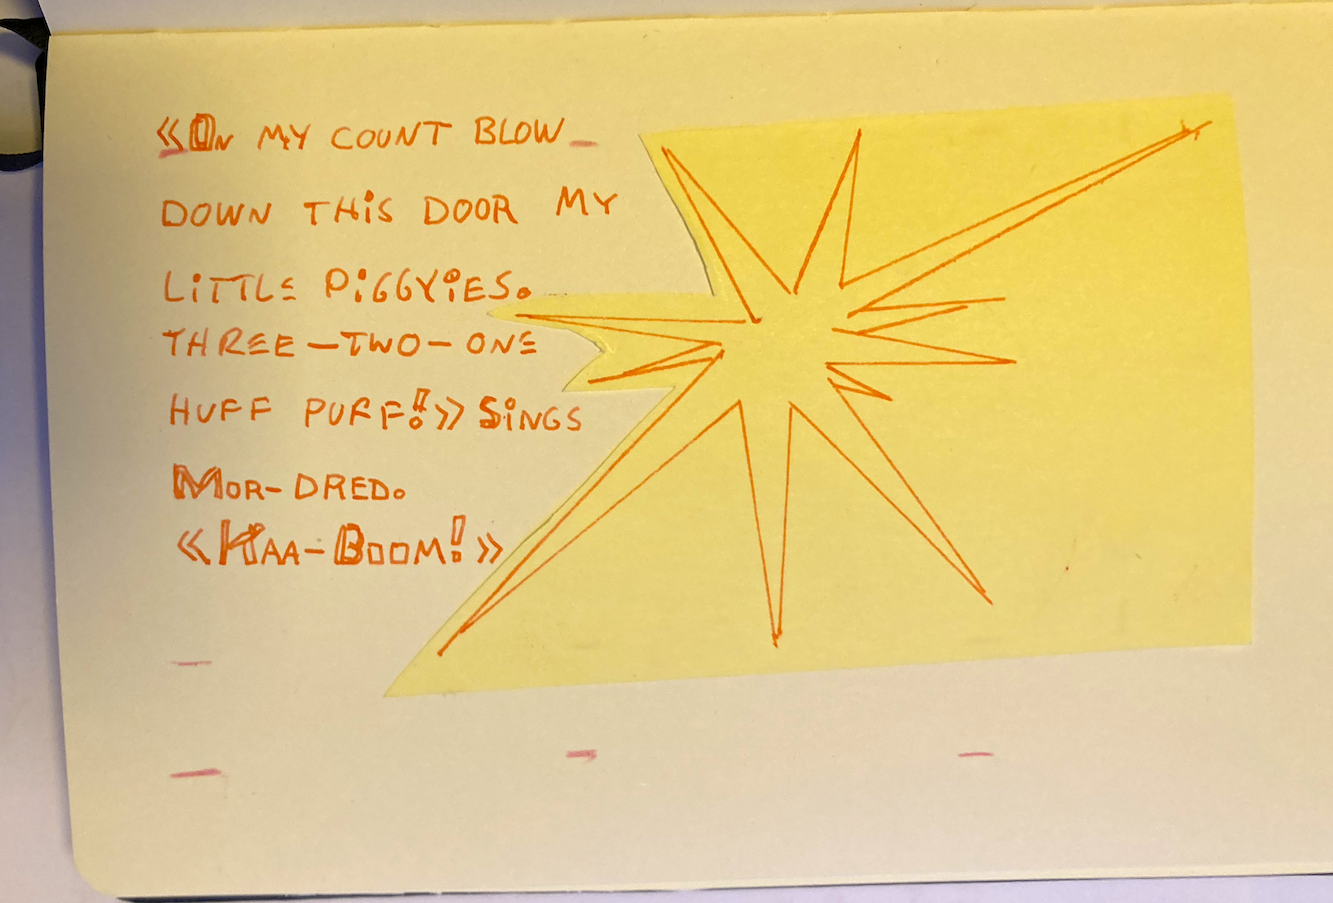 «On MY COUNT BLOW_
DOWN THiS DOOR MY
LiTTLE PiGGYiES.
THREE-TWO-ONE
HUFF PUFF!» SiNGS
MOR-DRED.
«KAA-BOOM!»